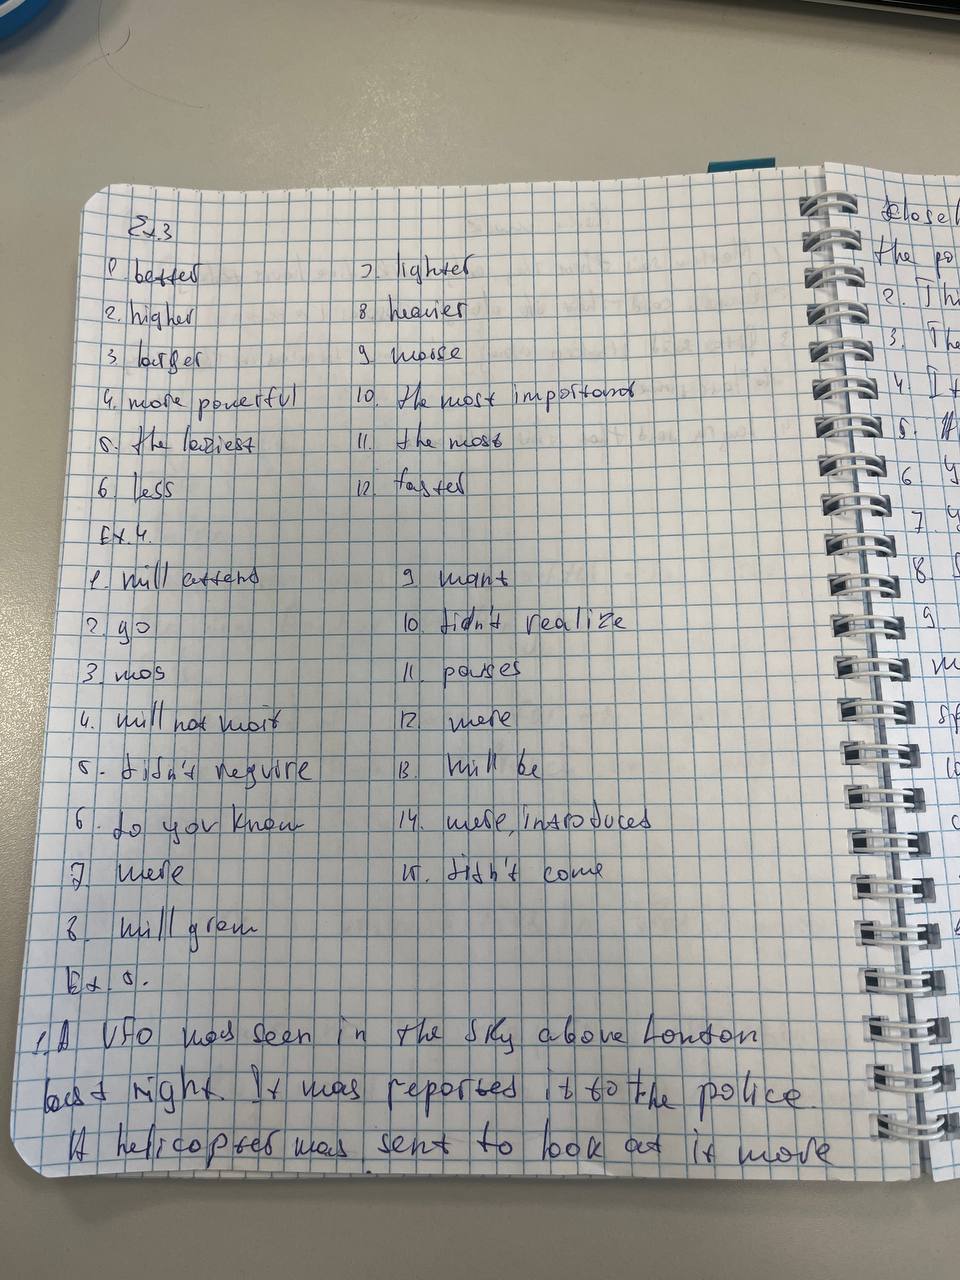 Ex.3
1. better
2. higher
3. larger
4. more powerful
5. the laziest
6. less
7. lighter
8. heavier
9. worse
10. the most important
11. the most
12. faster
Ex.4.
1. will attend
2. go
3. was
4. will not wait
5. didn't require
6. do you know
7. were
8. will grow
9. want
10. didn't realize
11. passes
12. were
13. will be
14. were, introduced
15. didn't come
Ex. 5.
1. A UFO was seen in the sky above London
last night. It was reported it to the police.
A helicopter was sent to look at it more
closel
the po
2. Thi
3. The
4. It
5.
6
7.
8.
9.
10